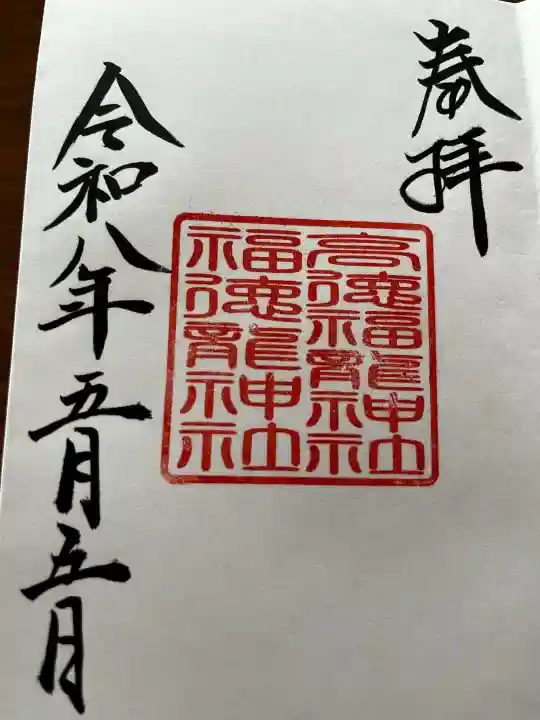 奉拝
高徳福龍神社
福徳龍神社
令和八年五月五日